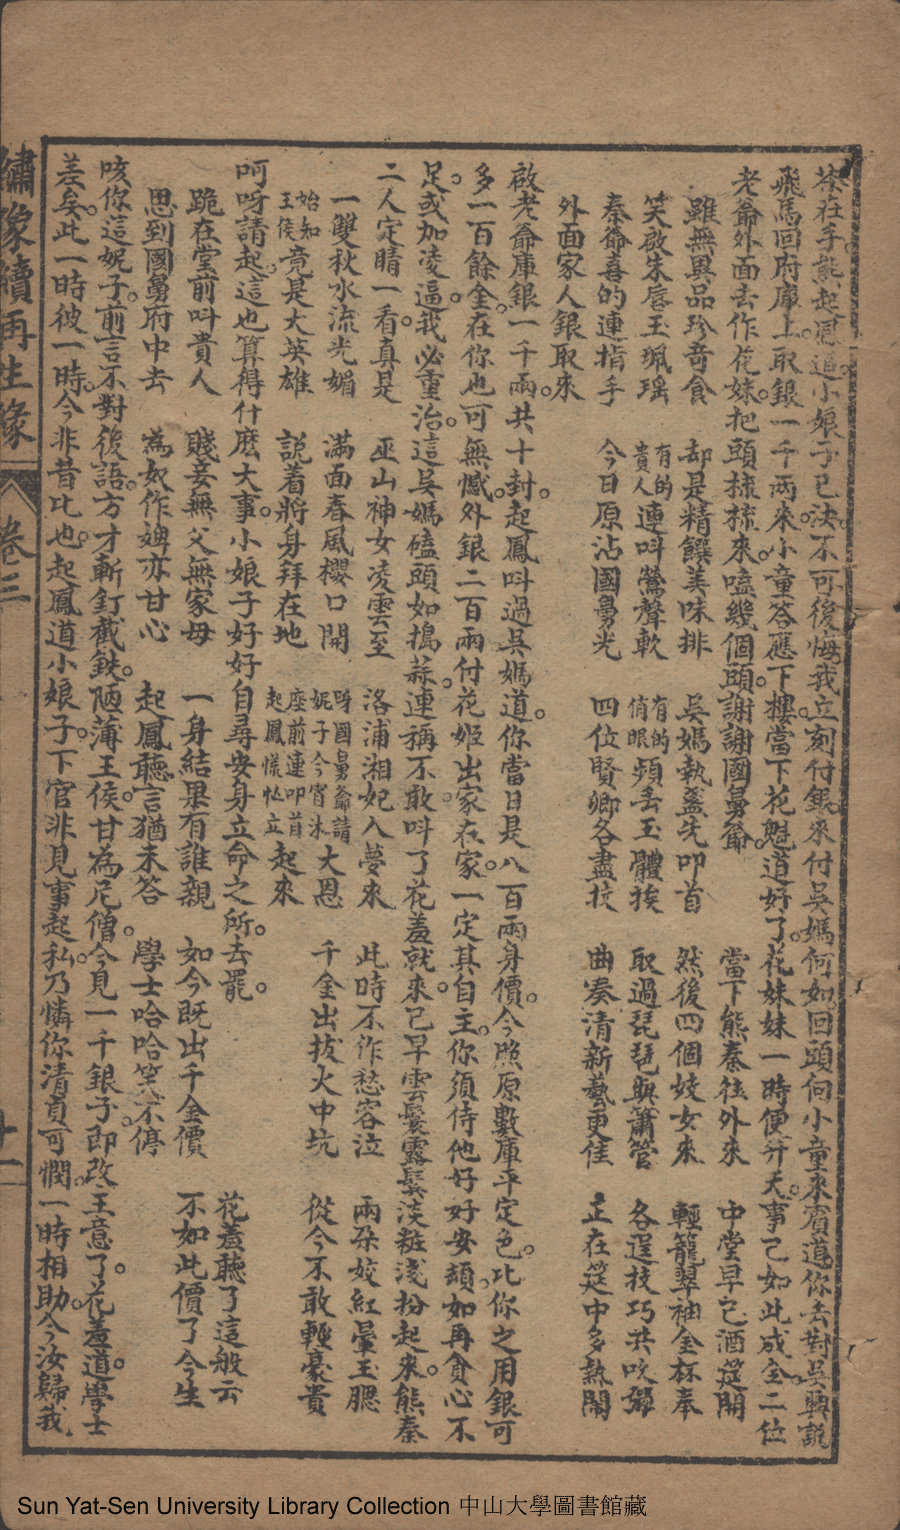 茶在手。熊起鳳道。小娘子已決。不可後悔。我立刻付銀來付吳媽何如。回頭向小童來賓道。你去對吳興說
飛馬回府。庫上取銀一千兩來。小童答應下樓。當下花魁道好了。花妹妹一時便升天。事已如此成全。二位
老爺外面去作花妹。把頭梳梳來。嗑幾個頭。謝謝國舅爺。
當下熊秦往外來　中堂早已酒筵開
雖無異品珍奇食　却是精饌美味排　吳媽執盞先叩首　然後四個妓女來　輕籠翠袖金杯奉
笑啟朱唇玉珮瑤　有的貴人連呌鶯聲軟　有的俏眼頻丟玉體挨　取過琵琶與簫管　各逞技巧共吹彈
秦爺喜的連指手　今日原沾國舅光　四位賢卿各盡技　曲奏清新藝更佳　正在筵中多熱鬧
外面家人銀取來
啟老爺庫銀一千兩。共十封。起鳳呌過吳媽道。你當日是八百兩身價。今照原數庫平定色。比你之用銀可
多一百餘金。在你也可無憾。外銀二百兩付花姬出家在家。一定其自主。你須侍他好好安頓。如再貪心不
足。或加凌逼。我必重治。這吳媽磕頭如搗蒜。連稱不敢。呌了花羞就來。已早雲鬟露鬢淡粧淺扮起來。熊秦
二人定睛一看。真是　巫山神女凌雲至　洛浦湘妃入夢來　此時不作愁容泣　兩朶姣紅暈玉腮
一雙秋水流光媚　滿面春風櫻口開　呀國舅爺請妮子今宵沐大恩　千金出拔火中坑　從今不敢輕豪貴
始知王侯竟是大英雄　說着將身拜在地　座前連叩首起鳳慌忙立起來
呵呀請起。這也算得什麽大事。小娘子好好自尋安身立命之所。去罷。　花羞聽了這般云
跪在堂前呌貴人　賤妾無父無家母　一身結果有誰親　如今既出千金價　不如此價了今生
思到國舅府中去　為奴作婢亦甘心　起鳳聽言猶未答　學士哈哈笑不停
咳你這妮子。前言不對後語。方才斬釘截鉄。陋薄王侯。甘為尼僧。今見一千銀子。即改主意了。花羞道。學士
差矣。此一時彼一時。今非昔比也。起鳳道小娘子。下官非見事起私。乃憐你清貞可憫。一時相助。今汝歸我
繡像續再生緣　卷三　十一
Sun Yat-Sen University Library Collection 中山大學圖書館藏